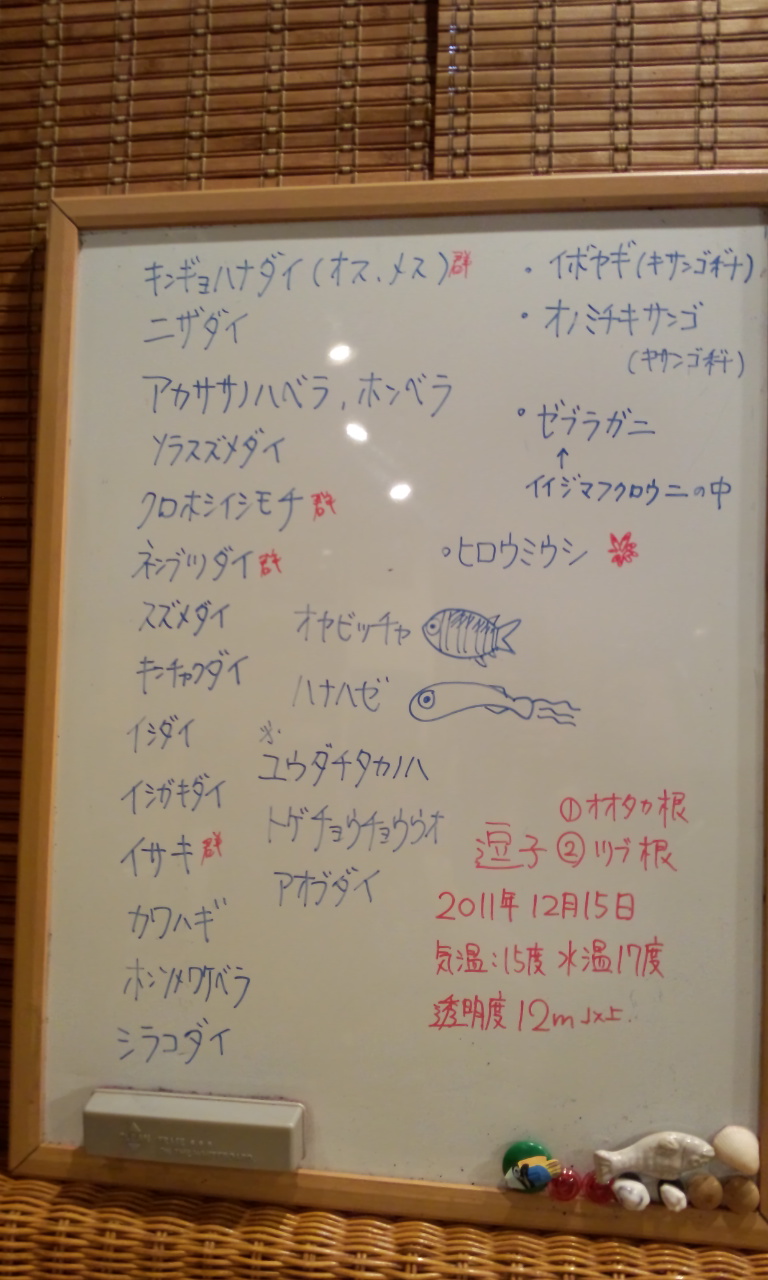 キンギョハナダイ(オス、メス)群
ニザダイ
アカササノハベラ、ホンベラ
ソラスズメダイ
クロホシイシモチ 群
ネンブツダイ 群
スズメダイ
キンチャクダイ
イシダイ
イシガキダイ
イサキ 群
カワハギ
ホシソメワケベラ
シラコダイ
オヤビッチャ
ハナハゼ
ユウダチタカノハ
トゲチョウチョウウオ
アオブダイ
・イボヤギ(キサンゴギナ)
・オノミチキサンゴ
(キサンゴギナ)
・ゼブラガニ
↑
イイジマフクロウニの中
・ヒロウミウシ
逗子 ①オオタカ根
②ツブ根
2011年12月15日
気温:15度 水温17度
透明度12m以上